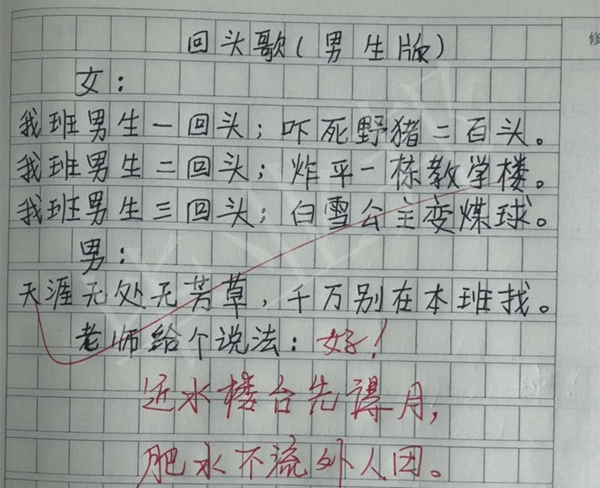 回头歌(男生版)
女:
我班男生一回头;吓死野猪二百头。
我班男生二回头;炸平一栋教学楼。
我班男生三回头;白雪公主变煤球。
男:
天涯无处无芳草,千万别在本班找。
老师给个说法:好!
近水楼台先得月,
肥水不流外人田。